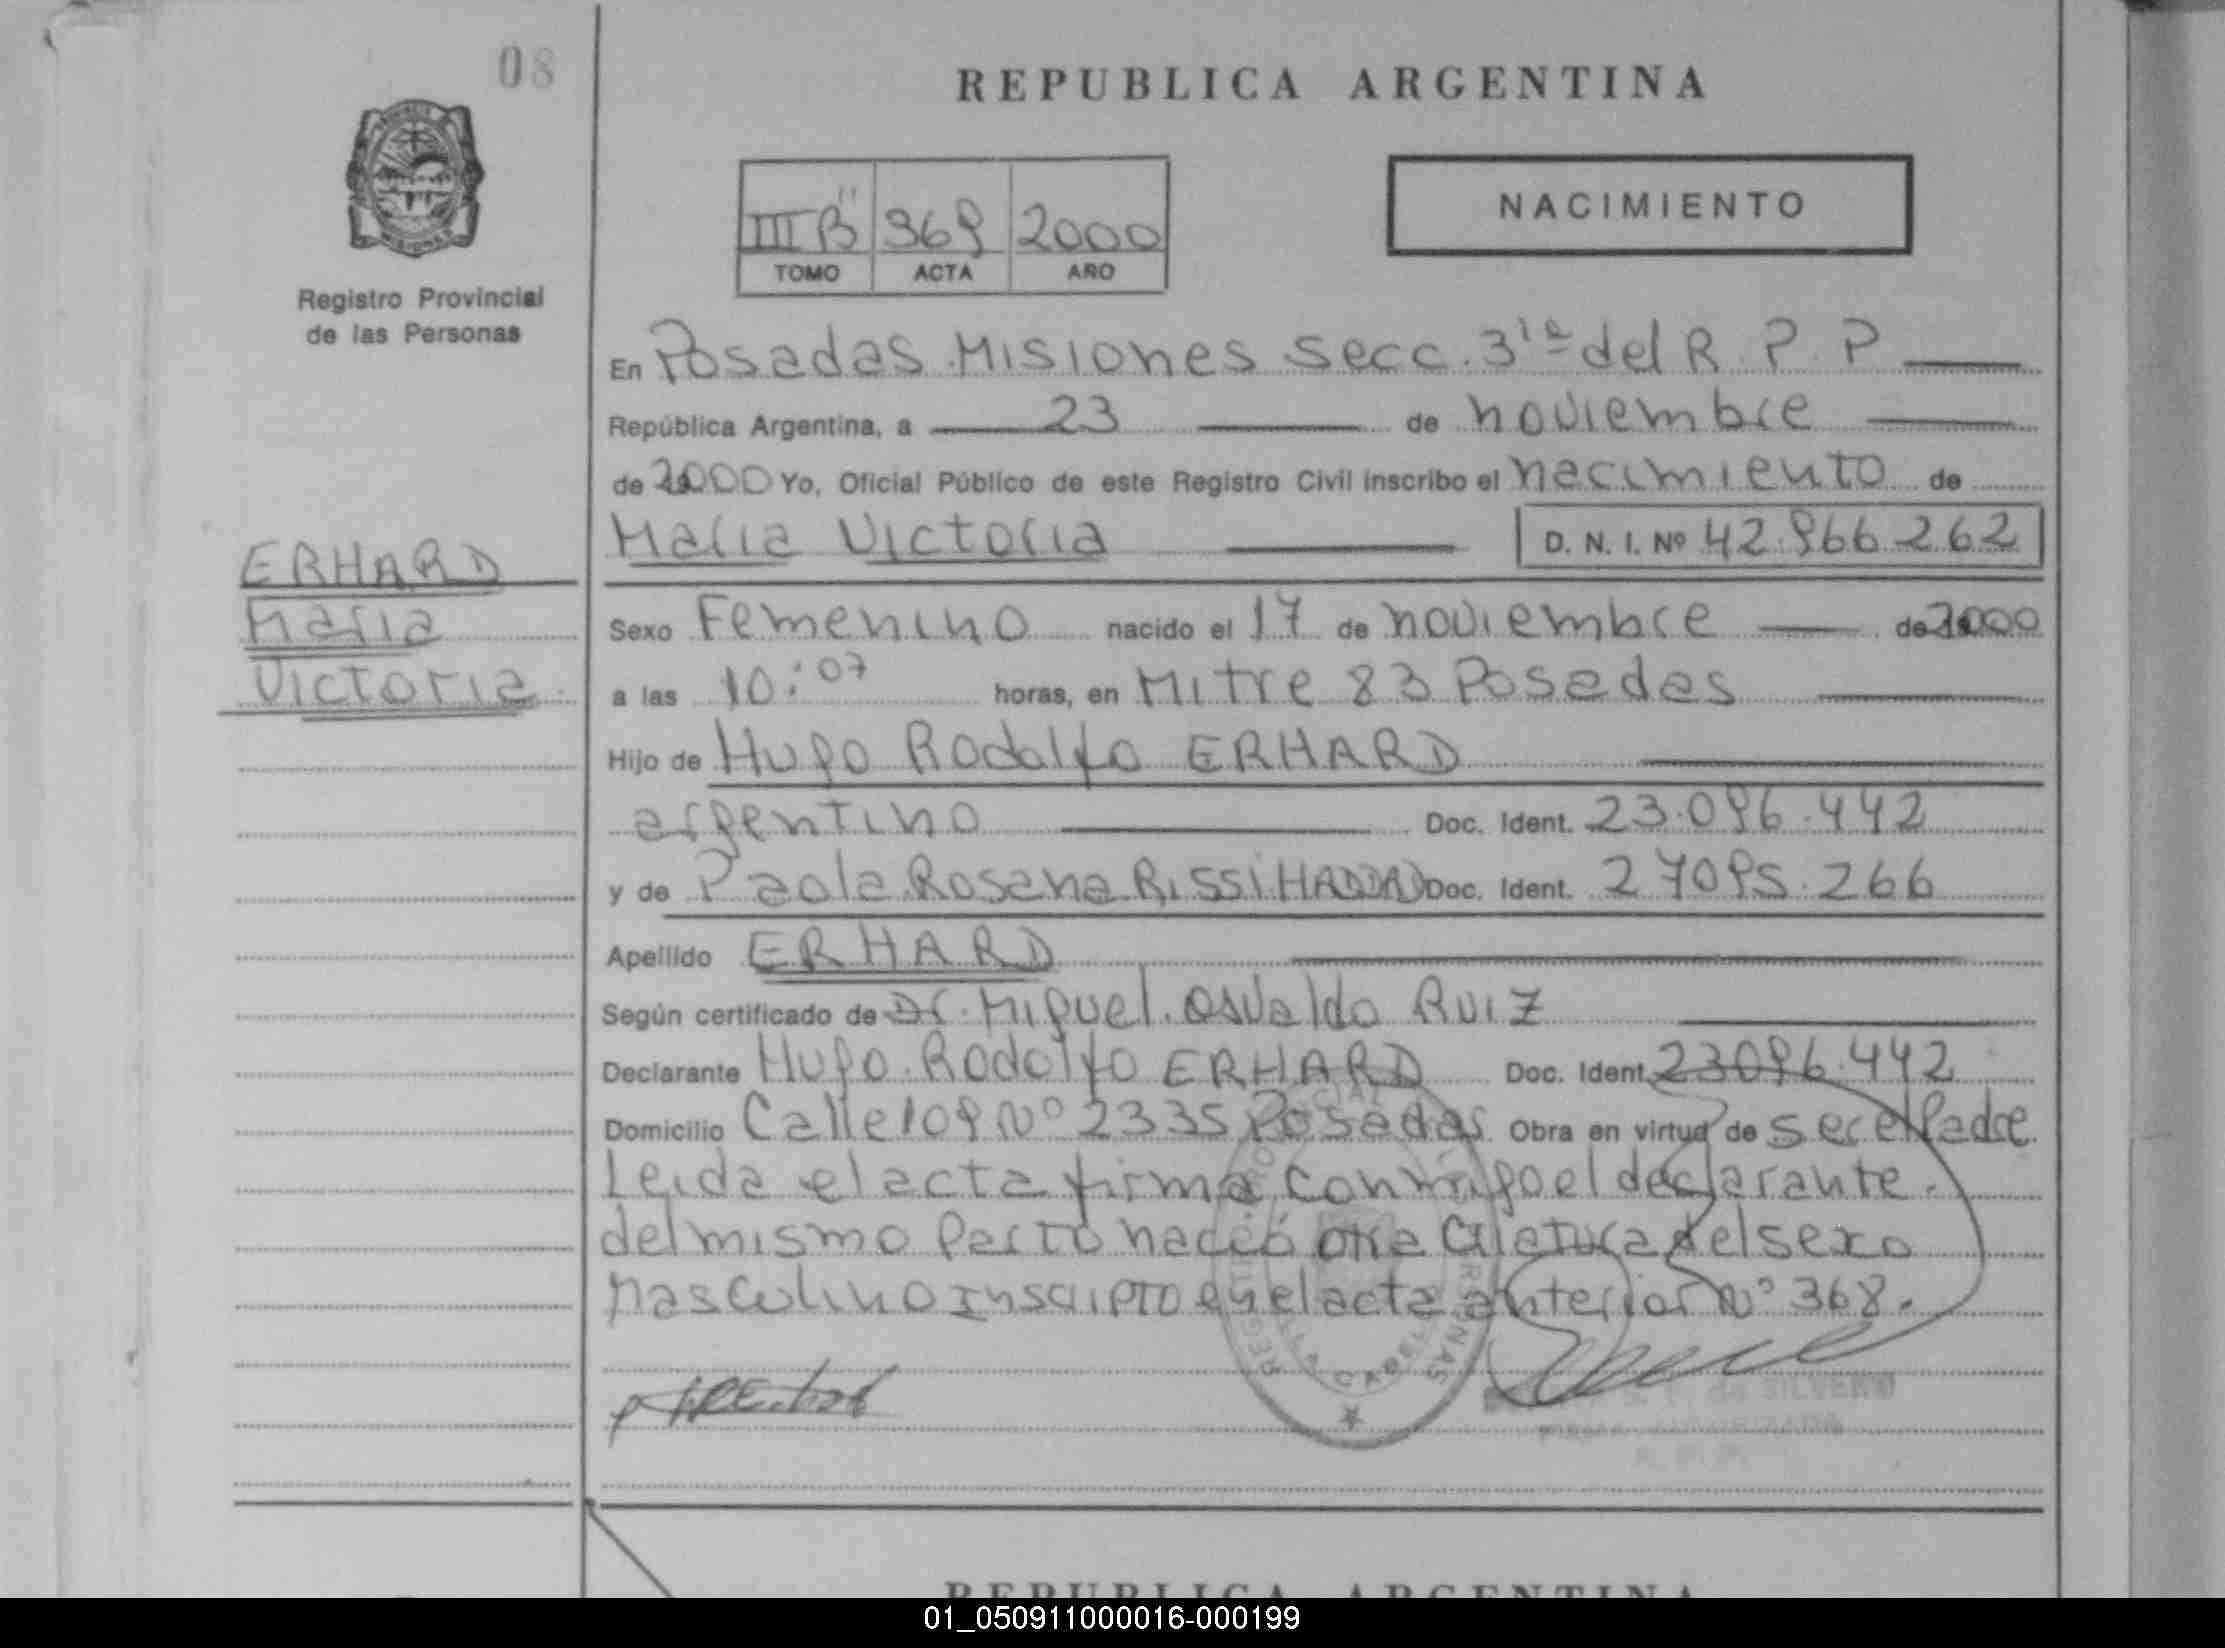 08
REPUBLICA ARGENTINA
NACIMIENTO
III "B" 369 2000
TOMO ACTA AÑO
Registro Provincial
de las Personas
En Posadas Misiones Secc. 3ra del R. P. P
República Argentina, a 23 de noviembre
de 2000 Yo, Oficial Público de este Registro Civil inscribo el nacimiento de
Maria Victoria D. N. I. Nº 42.966.262
ERHARD
Maria
Victoria
Sexo Femenino nacido el 17 de noviembre de 2000
a las 10:07 horas, en Mitre 83 Posadas
Hijo de Hugo Rodolfo ERHARD
argentino Doc. Ident. 23.096.442
y de Paola Rosana RISSI HADDAD Doc. Ident. 27095.266
Apellido ERHARD
Según certificado de Dr. Miguel Osvaldo Ruiz
Declarante Hugo Rodolfo ERHARD Doc. Ident. 23096.442
Domicilio Calle 109 Nº 2335 Posadas Obra en virtud de ser el Padre
Leida el acta firma conmigo el declarante.
del mismo parto nació otra criatura del sexo
Masculino inscripto en el acta anterior Nº 368.
de SILVERO
REPUBLICA ARGENTINA
01_050911000016-000199